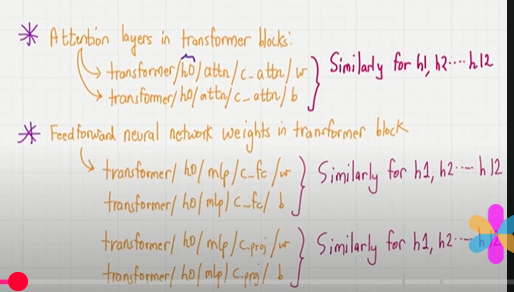 * Attention layers in transformer blocks:
transformer/h0/attn/c_attn/w
transformer/h0/attn/c_attn/b
Similarly for h1, h2....h12
* Feedforward neural network weights in transformer block
transformer/h0/mlp/c_fc/w
transformer/h0/mlp/c_fc/b
Similarly for h1, h2....h12
transformer/h0/mlp/c_proj/w
transformer/h0/mlp/c_proj/b
Similarly for h1, h2....h12